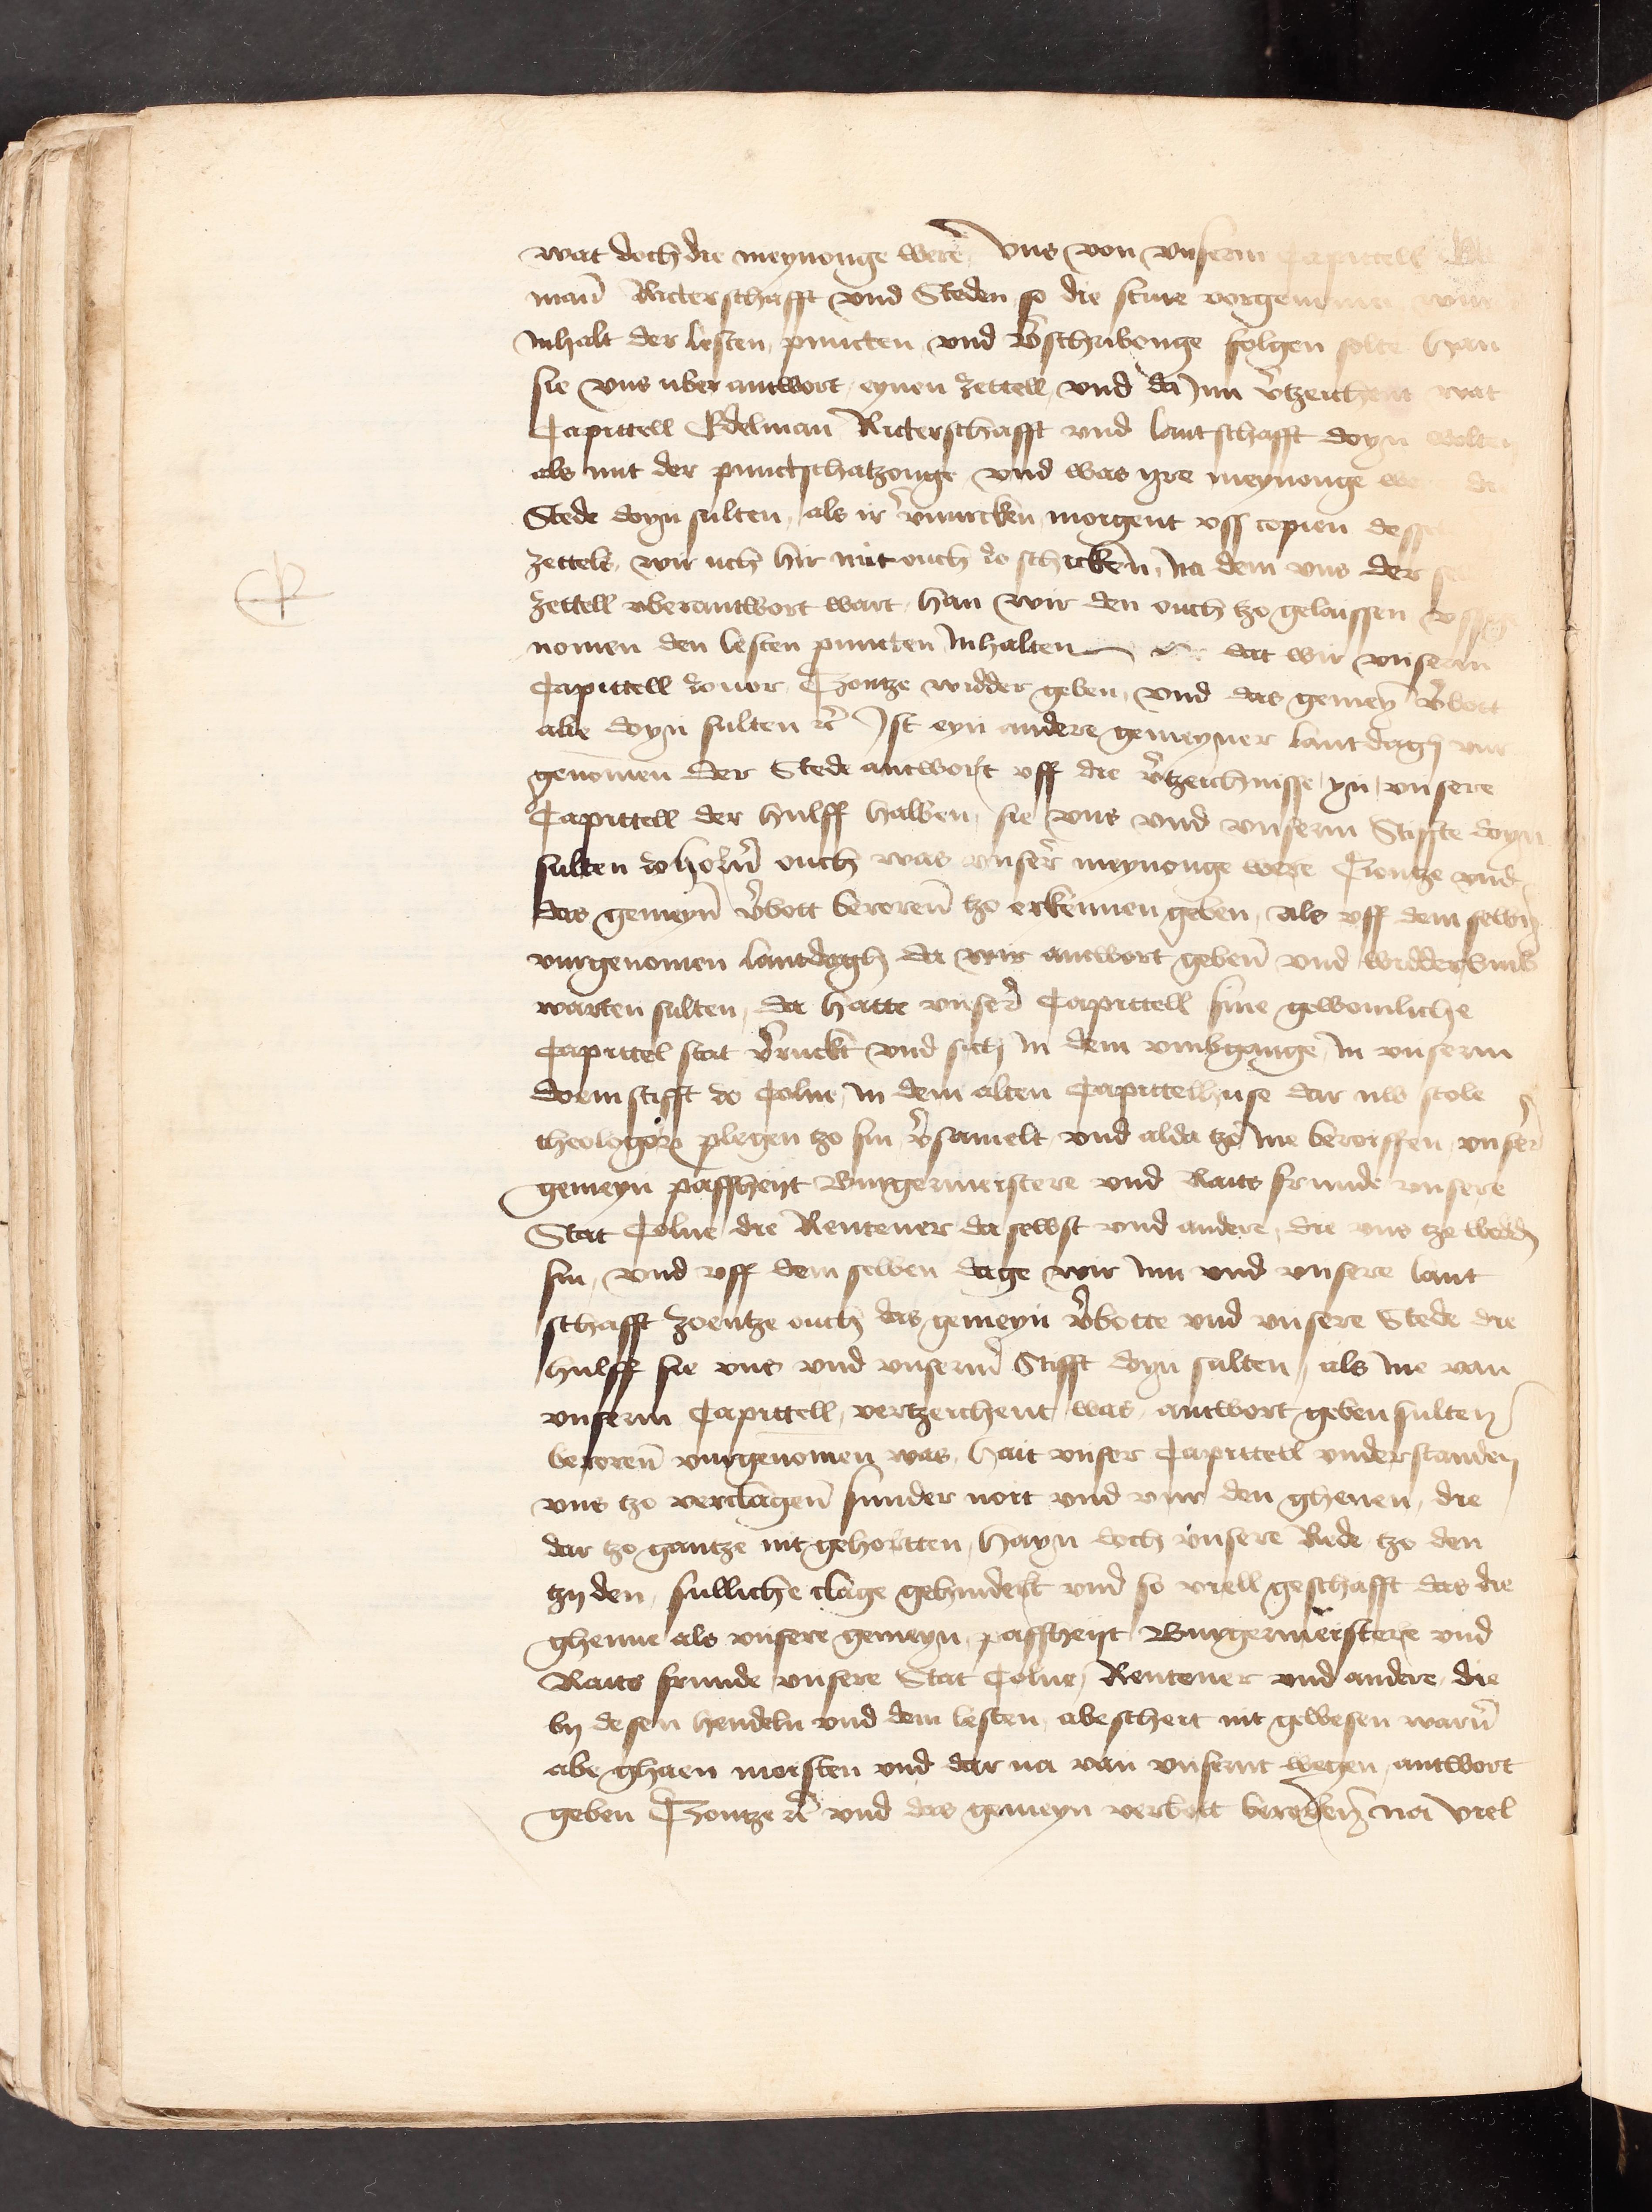 wat doch die meynonge were, vns von vnserm Capittell
man̄ Ritterschafft vnd Steden so die sture vorgenomen
Inhalt der lesten puncten vnd v̄schrivonge folgen solte hain
sie vns uberantwort eynen zettell, vnd da Jnn v̄tzeichent wat
Capittell Edelman Ritterschafft vnd lantschafft doyn wolten
als mit der punctschatzonge vnd was yre meynonge die
Stede doyn sulten, als ir v̄mircken morgent vss copien
zettels, wir uch hir mit ouch zo schicken, na dem vns der
zettell vberantwort wart, han wir den ouch tzo gelaissen
nomen den lesten puncten Inhalten dat wir vnserm
Capittell zouor Tzontze widder geben, vnd das gemeyn v̄bott
abe doyn sulten rc̄ Ist eyn andere gemeyner lantdagh vur
genomen der Stede antwort vff die v̄tzeichnisse, yn vnsere
Capittell der hulff halben, sie vns vnd vnserm Stiffte doyn
sulten zo horn̄ ouch was vnser meynonge were Tzontze vnd
das gemeyn̄ v̄bott beroren̄ tzo erkennen geben, Als vff dem selbn̄
vurgenomen lantdagh da wir antwort geben̄ vnd widderumb
warten sulten, da hatte vnser Capittell sine gewonliche
Capittel stat v̄ruckt vnd sich in dem vmbgange, in vnserm
doemstifft zo Colne, in dem alten Capittelhuse dar nw scole
theologorum plegen tzo sin, v̄samelt vnd alda tzo Ine beroiffen, vnser
gemeyn paffheyt Burgermeistere vnd Raits frunde vnsere
Stat Colne die Rentener da selbst vnd andere, die vns tze wedd̄
sin, vnd vff dem selben dage wir Inn vnd vnsere lant
schafft zoentze ouch das gemeyn v̄botte vnd vnsere Stede die
hulff sie vns vnd vnserm̄ Stifft doyn sulten, als Ine van
vnserm Capittell, vertzeichent was, antwort geben sulten
beroren̄ vurgenomen was, hait vnser Capittell vnderstanden
vns tzo verclagen̄ sunder noit vnd vur den ghenen, die
dar tzo gantze nit gehortten, hayn doch vnsere Rede tzo den
tzyden, sulliche clage gehindert vnd so viell geschafft das die
ghenne als vnsere gemeyn, paffheyt Burgermeistere vnd
Raits frunde vnsere Stat Colne, Rentener vnd andere, die
by desen hendeln vnd dem lesten, abescheit nit gewesen warn̄
abe ghaen moisten vnd dar na van vnsernt wegen, antwort
geben Tzontze rc̄ vnd das gemeyn verbott beroren̄ na viel